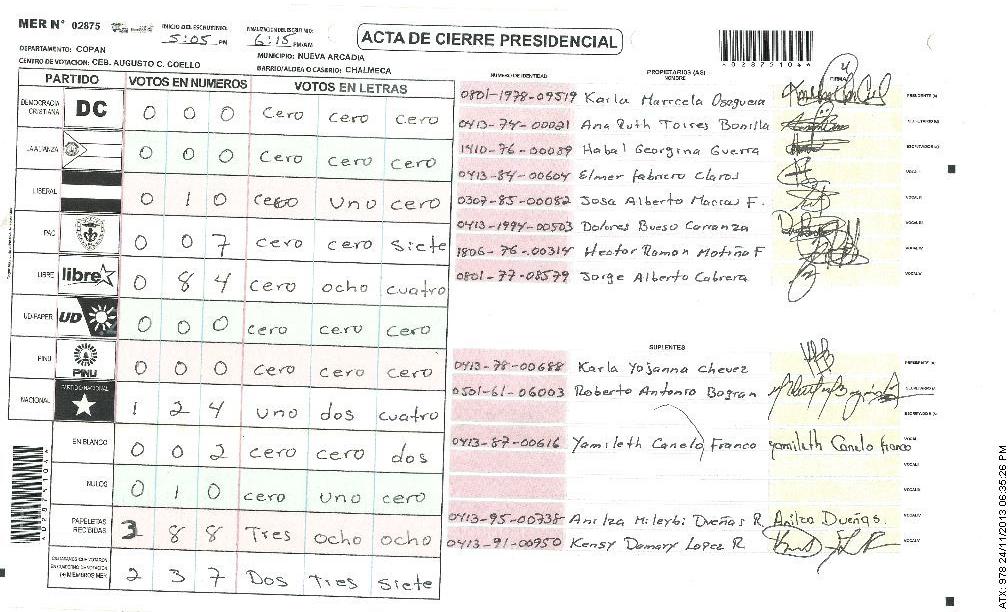 MER N° 02875
INICIO DEL ESCRUTINIO: 5:05 PM
6:15 PM/AM
ACTA DE CIERRE PRESIDENCIAL
*02875104*
DEPARTAMENTO: COPAN
MUNICIPIO: NUEVA ARCADIA
CENTRO DE VOTACION: CEB. AUGUSTO C. COELLO
BARRIO/ALDEA O CASERIO: CHALMECA
PARTIDO VOTOS EN NUMEROS VOTOS EN LETRAS
DEMOCRACIA CRISTIANA DC 0 0 0 Cero cero cero
LA ALIANZA 0 0 0 Cero cero cero
LIBERAL 0 1 0 cero uno cero
PAC 0 0 7 cero cero siete
LIBRE libre 0 8 4 cero ocho cuatro
UD-FAPER UD 0 0 0 cero cero cero
PINU PINU 0 0 0 cero cero cero
NACIONAL PARTIDO NACIONAL 1 2 4 uno dos cuatro
EN BLANCO 0 0 2 cero cero dos
NULOS 0 1 0 cero uno cero
PAPELETAS RECIBIDAS 3 8 8 Tres ocho ocho
(+) MIEMBROS MER 2 3 7 Dos Tres siete
NUMERO DE IDENTIDAD PROPIETARIOS (AS) NOMBRE FIRMA
0801-1978-09519 Karla Marcela Oseguera
0413-74-00021 Ana Ruth Torres Bonilla
1410-76-00089 Habal Georgina Guerra
0413-84-00604 Elmer fabricio Claros
0307-85-00082 Josa Alberto Marcas F.
0413-1994-00503 Dolores Bueso Carranza
1806-76-00314 Hector Ramon Motiño F
0801-77-08579 Jorge Alberto Cabrera
SUPLENTES
0413-78-00688 Karla Yojanna Chevez
0501-61-06003 Roberto Antonio Bogran
0413-87-00616 Yamileth Canelo Franco Yamileth Canelo franco
0413-95-00738 Anilza Mileybi Dueñas R Anilza Dueñas.
0413-91-00950 Kensy Damary Lopez R
ATX: 978 24/11/2013 06:35:26 PM